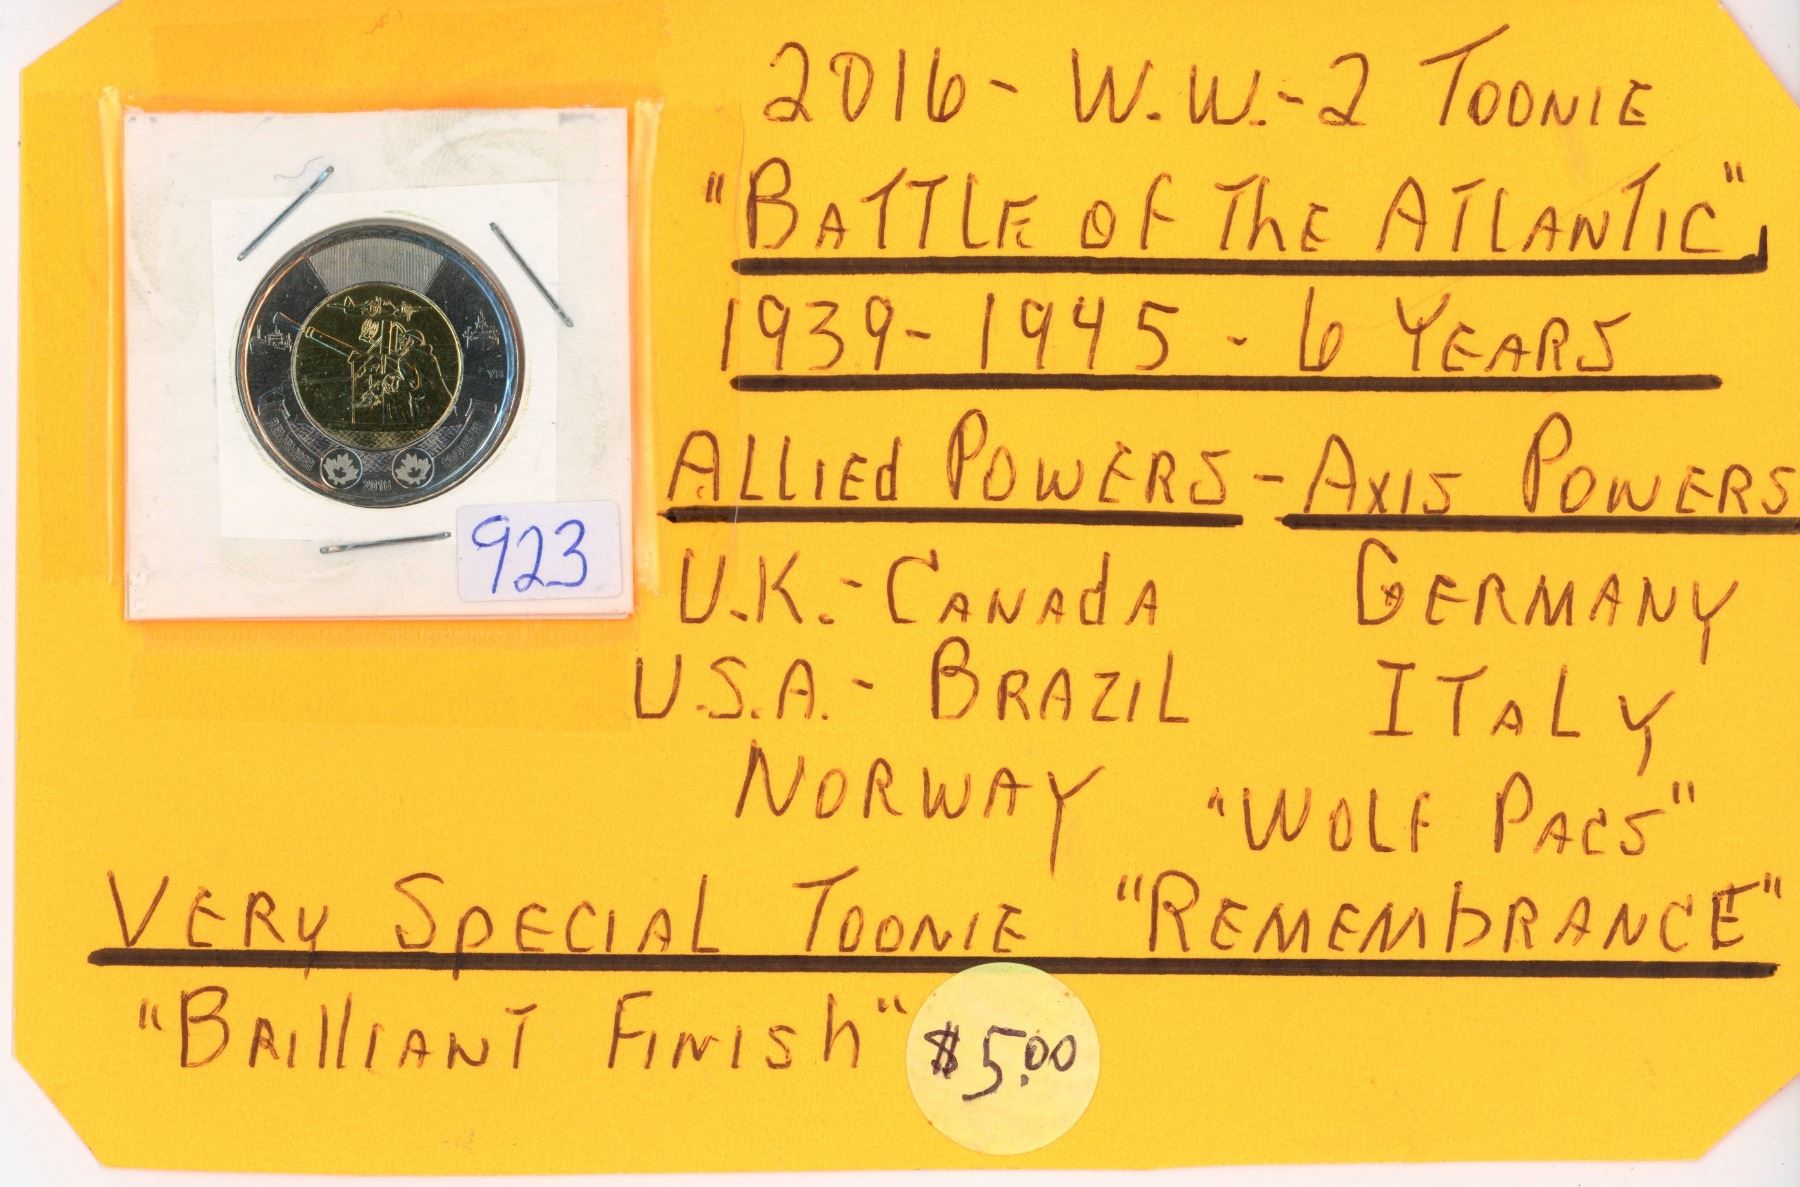 2016 - W.W.-2 TOONIE
"BATTLE OF THE ATLANTIC",
1939 - 1945 - 6 YEARS
ALLIED POWERS - AXIS POWERS
U.K. - CANADA GERMANY
U.S.A. - BRAZIL ITALY
NORWAY "WOLF PACS"
VERY SPECIAL TOONIE "REMEMBRANCE"
"BRILLIANT FINISH" $5.00
923
2016